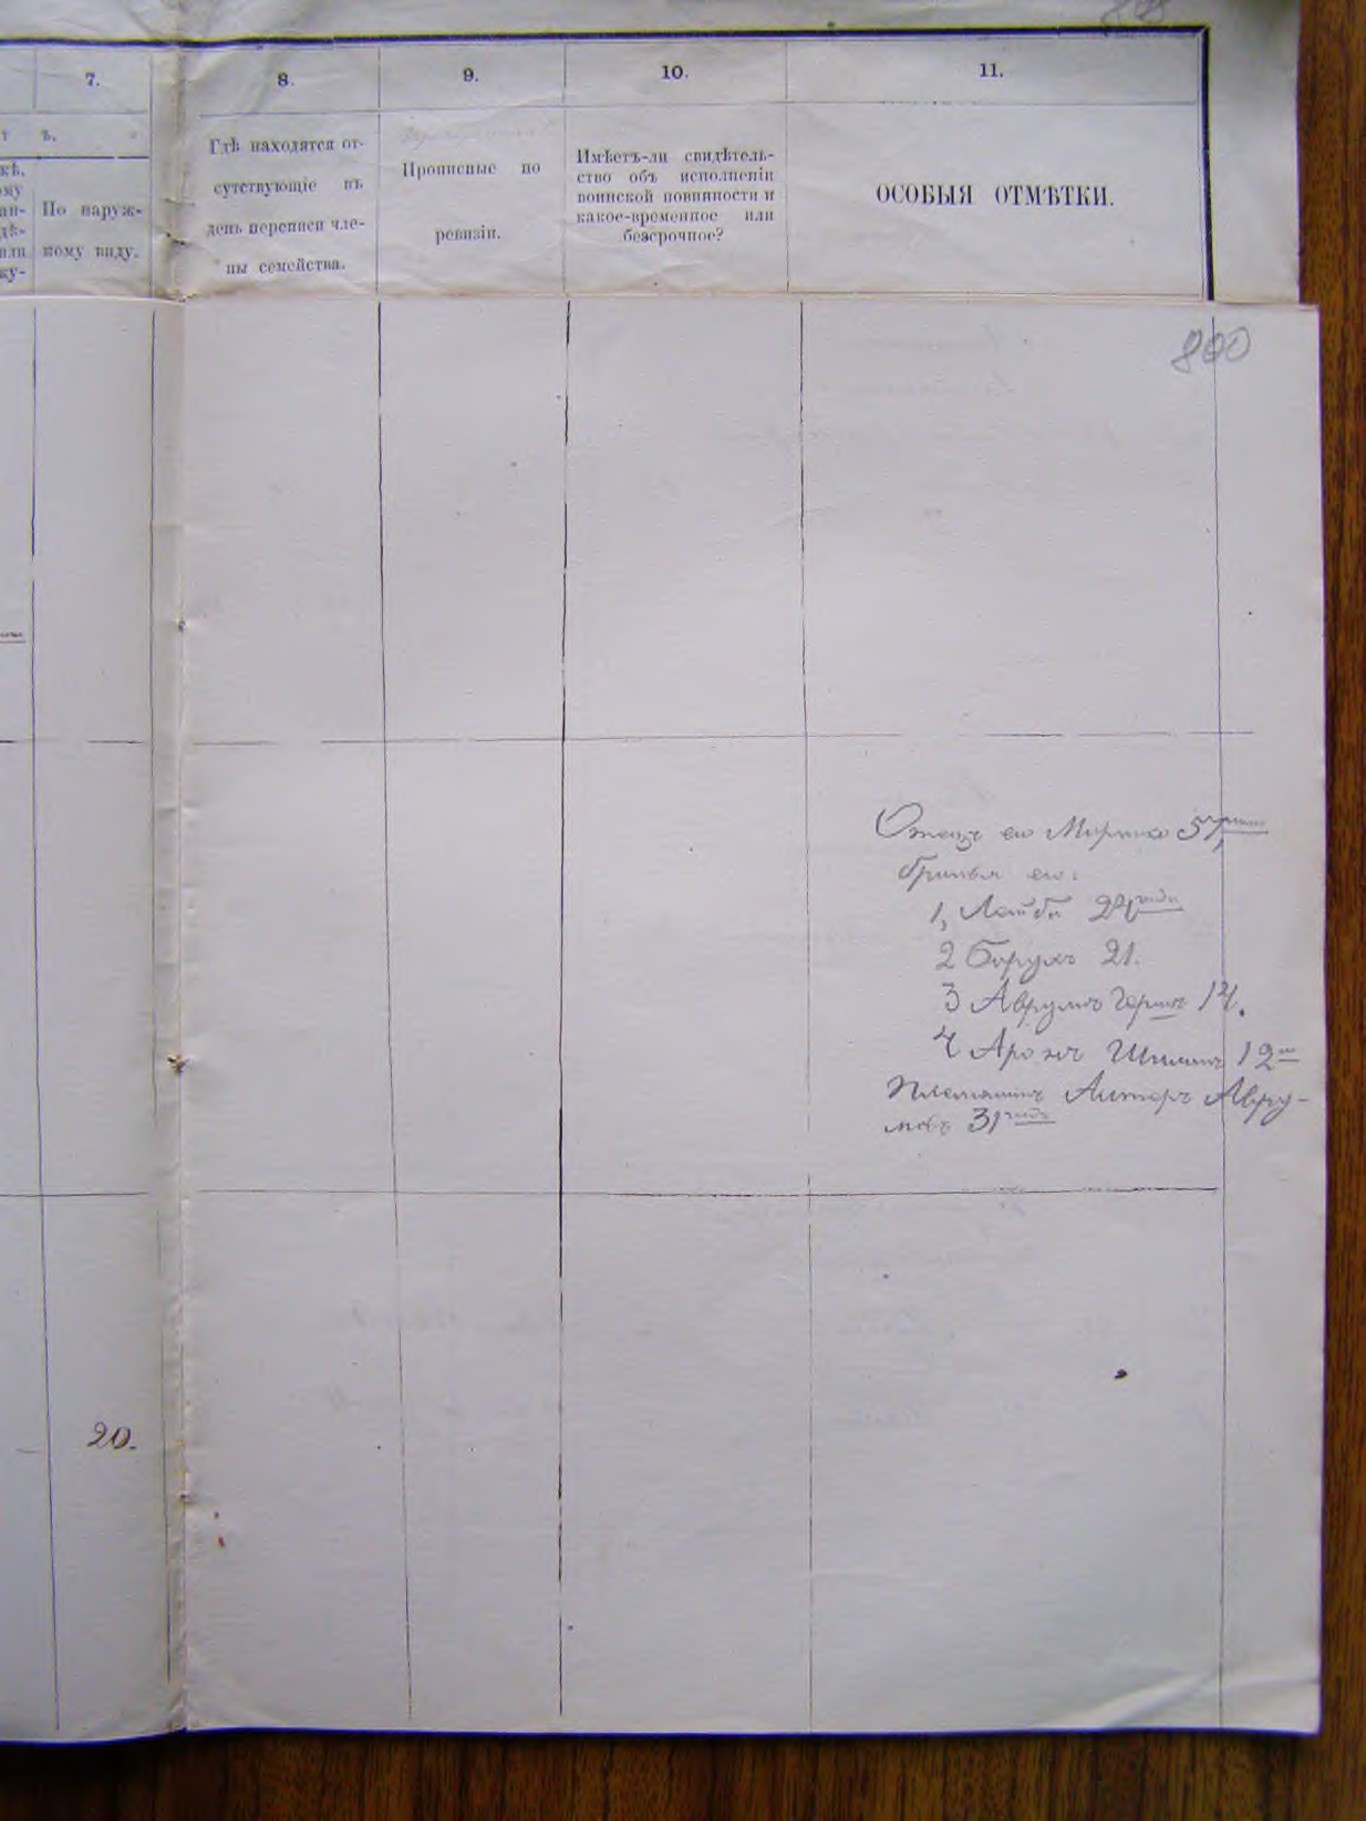 7.
8.
9.
10.
11.
ъ.
По наруж-
ному виду.
Гдѣ находятся от-
сутствующіе въ
день переписи чле-
ны семейства.
Прописные по
ревизіи.
Имѣетъ-ли свидѣтель-
ство объ исполненіи
воинской повинности и
какое-временное или
безсрочное?
ОСОБЫЯ ОТМѢТКИ.
800
Отецъ его 57
братья его:
1, Лейба 24 года
2 Борухъ 21.
3 Аврумъ Гершъ 14.
4 Аронъ 12
Племянникъ Антеръ Авру-
мовъ 31 года
20.